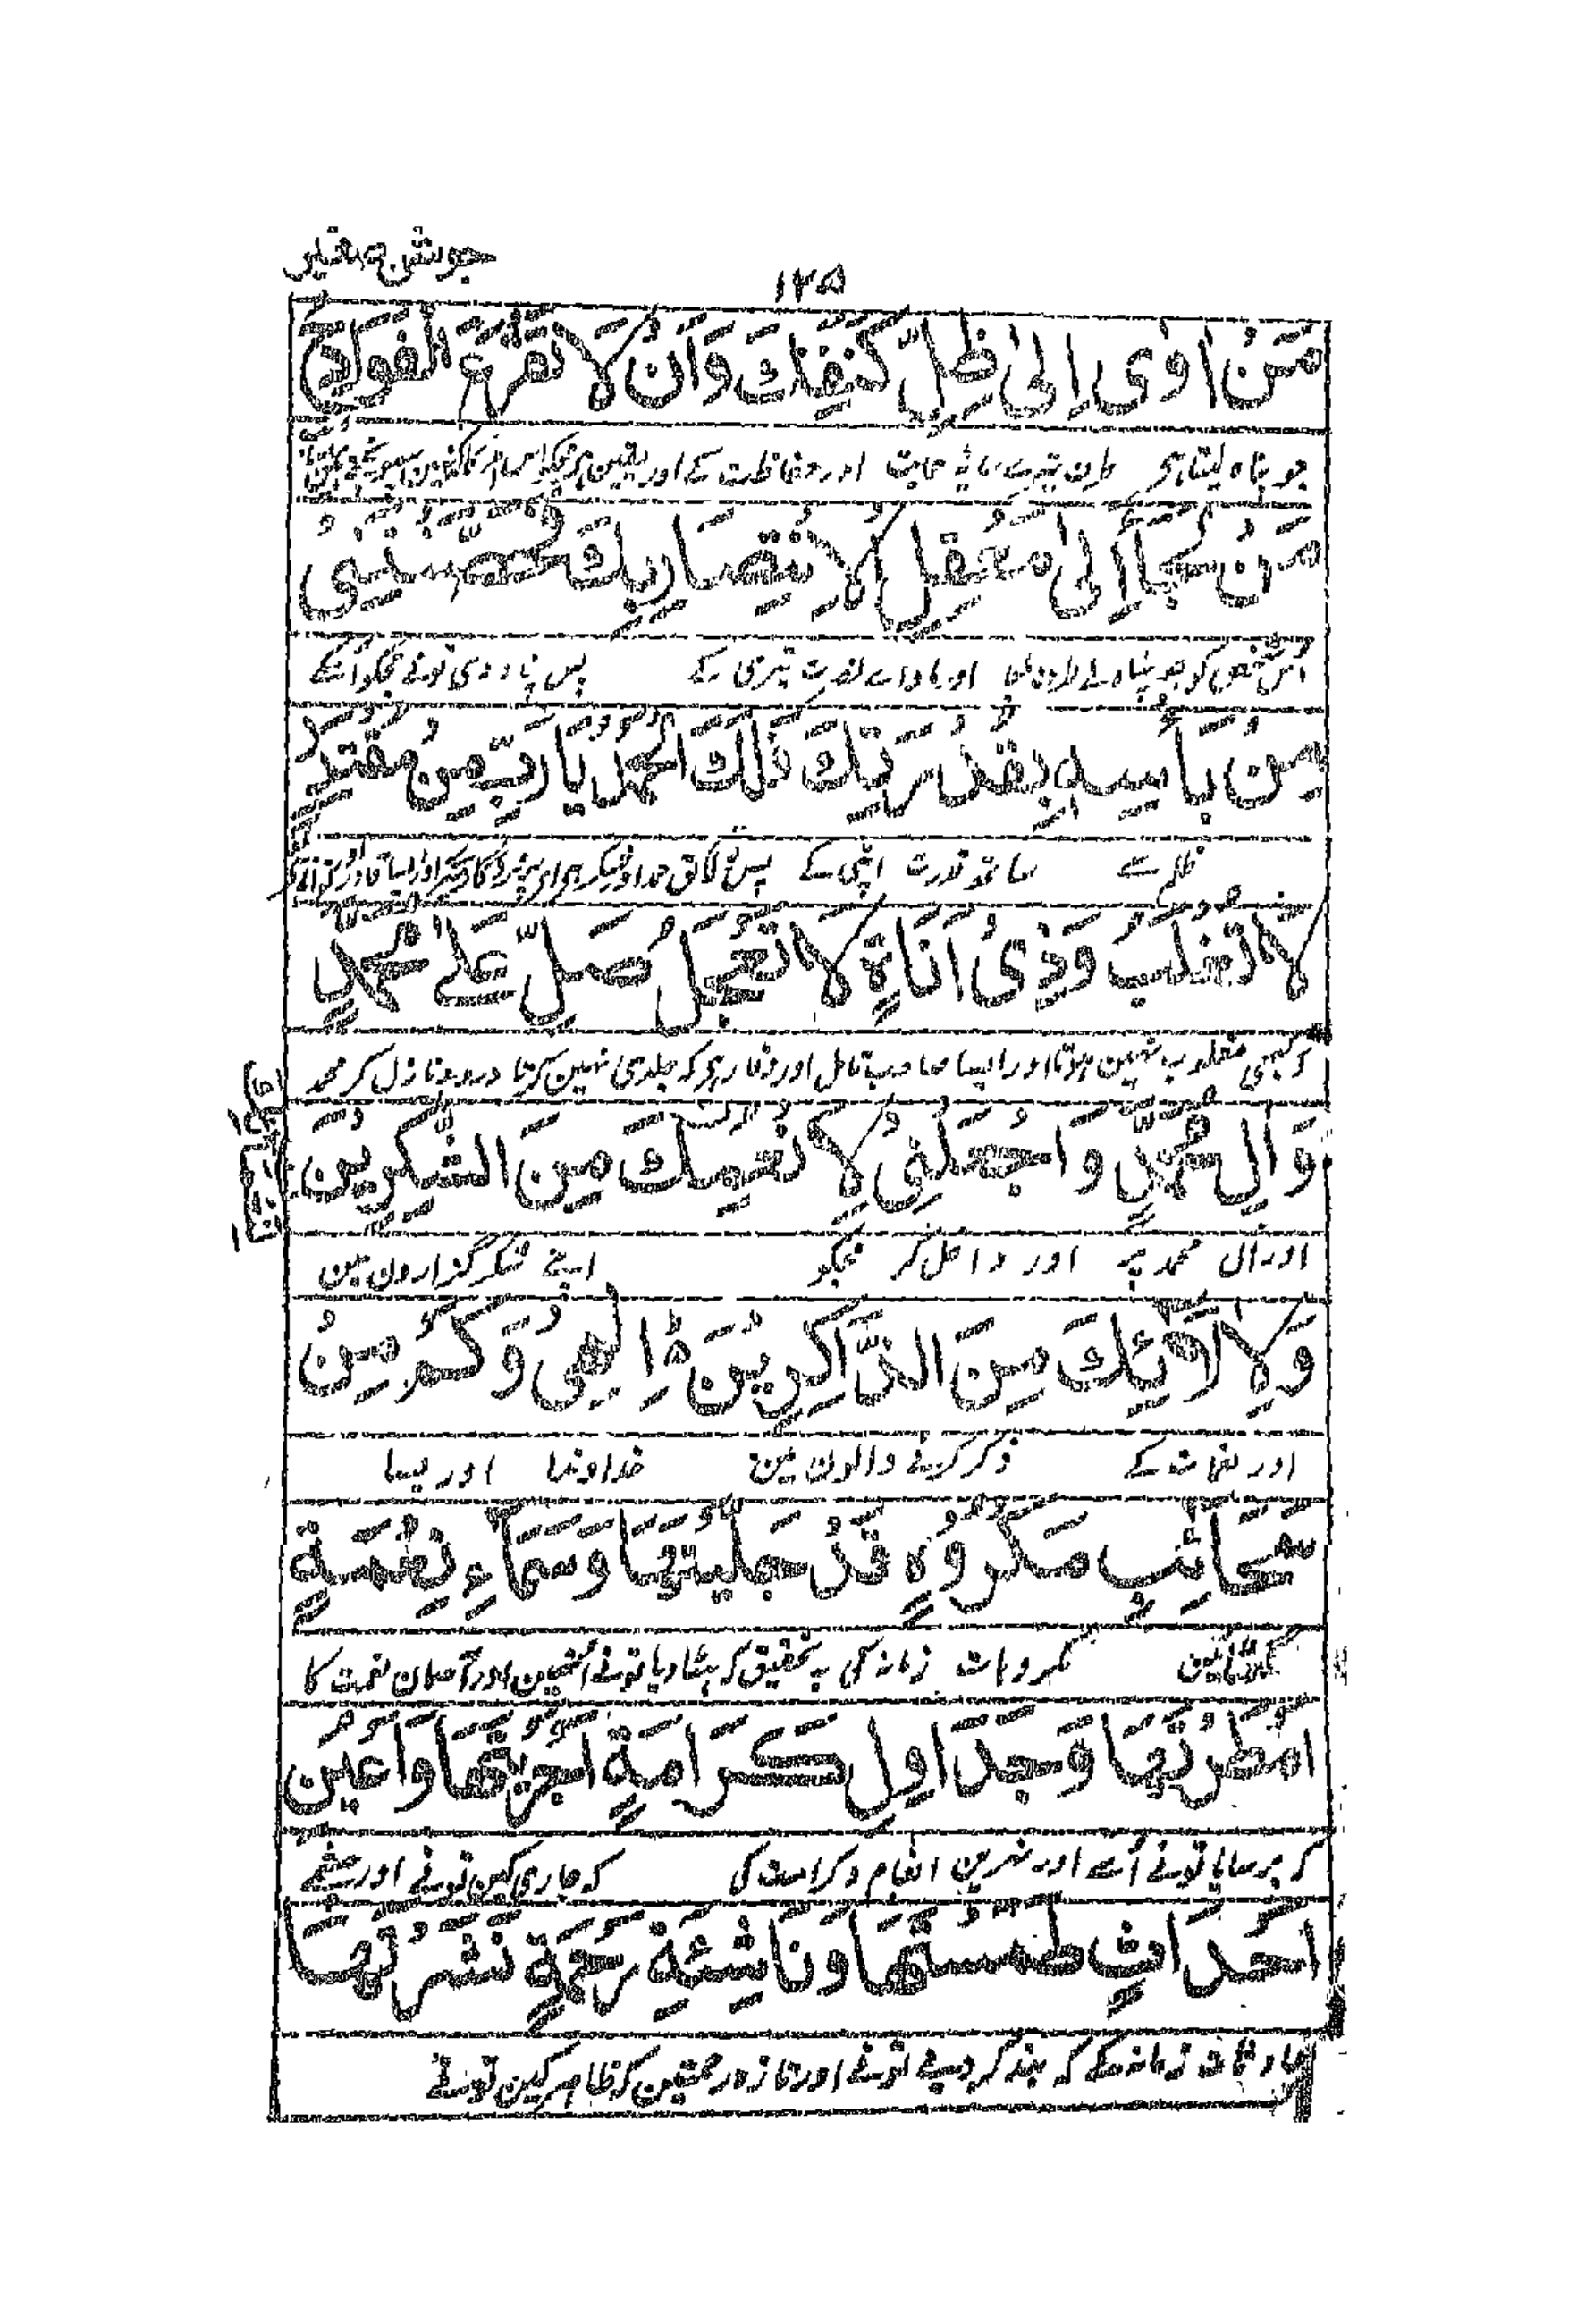 جوشن صغیر
۱۲۵
مَنْ اٰوٰی اِلٰی ظِلِّ کَنَفِکَ وَاَنْ لَا تَقْرَعَ الْفَوَادِحُ
جو پناہ لیتا ہی طرف تیرے سایۂ حمایت اور حفاظت کے اور یقین ہی
مَنْ لَجَاَ اِلٰی مَعْقِلِ الْاِنْتِصَارِ بِکَ فَحَصَّنْتَنِیْ
اُس شخص کو جو پناہ لے طرف نصرت تیری کے پس پناہ دی تونے مجکو اُسکے
مِنْ بَاْسِهٖ بِقُدْرَتِکَ فَلَکَ الْحَمْدُ یَا رَبِّ مِنْ مُقْتَدِرٍ
ظلم سے ساتھ قدرت اپنی کے پس لائق حمد اور شکر ہی
لَا تُغْلَبُ وَذِیْ اَنَاةٍ لَا تَعْجَلُ صَلِّ عَلٰی مُحَمَّدٍ
کہ کبھی مغلوب نہین ہوتا اور ایسا صاحب تامل اور وقار ہی کہ جلدی نہین کرتا درود نازل کر محمد
وَاٰلِ مُحَمَّدٍ وَاجْعَلْنِیْ لِاَنْعُمِکَ مِنَ الشّٰکِرِیْنَ
اور آل محمد پر اور داخل کر مجکو اپنے شکر گزارون مین
وَلِاٰلَآئِکَ مِنَ الذَّاکِرِیْنَ ۵ اِلٰهِیْ وَکَمْ مِنْ
اور نعمات کے ذکر کرنے والون مین خداوندا اور بسا
سَحَائِبِ مَکْرُوْهٍ قَدْ جَلَّیْتَهَا وَسَمَآءِ نِعْمَةٍ
گھٹائین مکروہات زمانہ کی بہ تحقیق کہ ہٹا دیا تونے انھین اور آسمان نعمت کا
اَمْطَرْتَهَا وَجَدَاوِلِ کَرَامَةٍ اَجْرَیْتَهَا وَاَعْیُنِ
کہ برسایا تونے اُسے اور نہرین انعام و کرامت کی کہ جاری کین تونے اور چشمے
اَحْدَاثٍ طَمَسْتَهَا وَنَاشِئَةِ رَحْمَةٍ نَشَرْتَهَا
حادثات زمانہ کے کہ بند کر دیے تونے اور تازہ رحمتین کہ ظاہر کین تونے